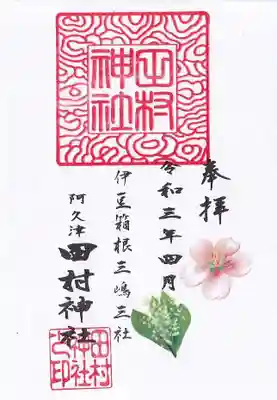 奉拝
令和三年四月
伊豆箱根三嶋三社
阿久津
田村神社
田村神社
田村神社之印